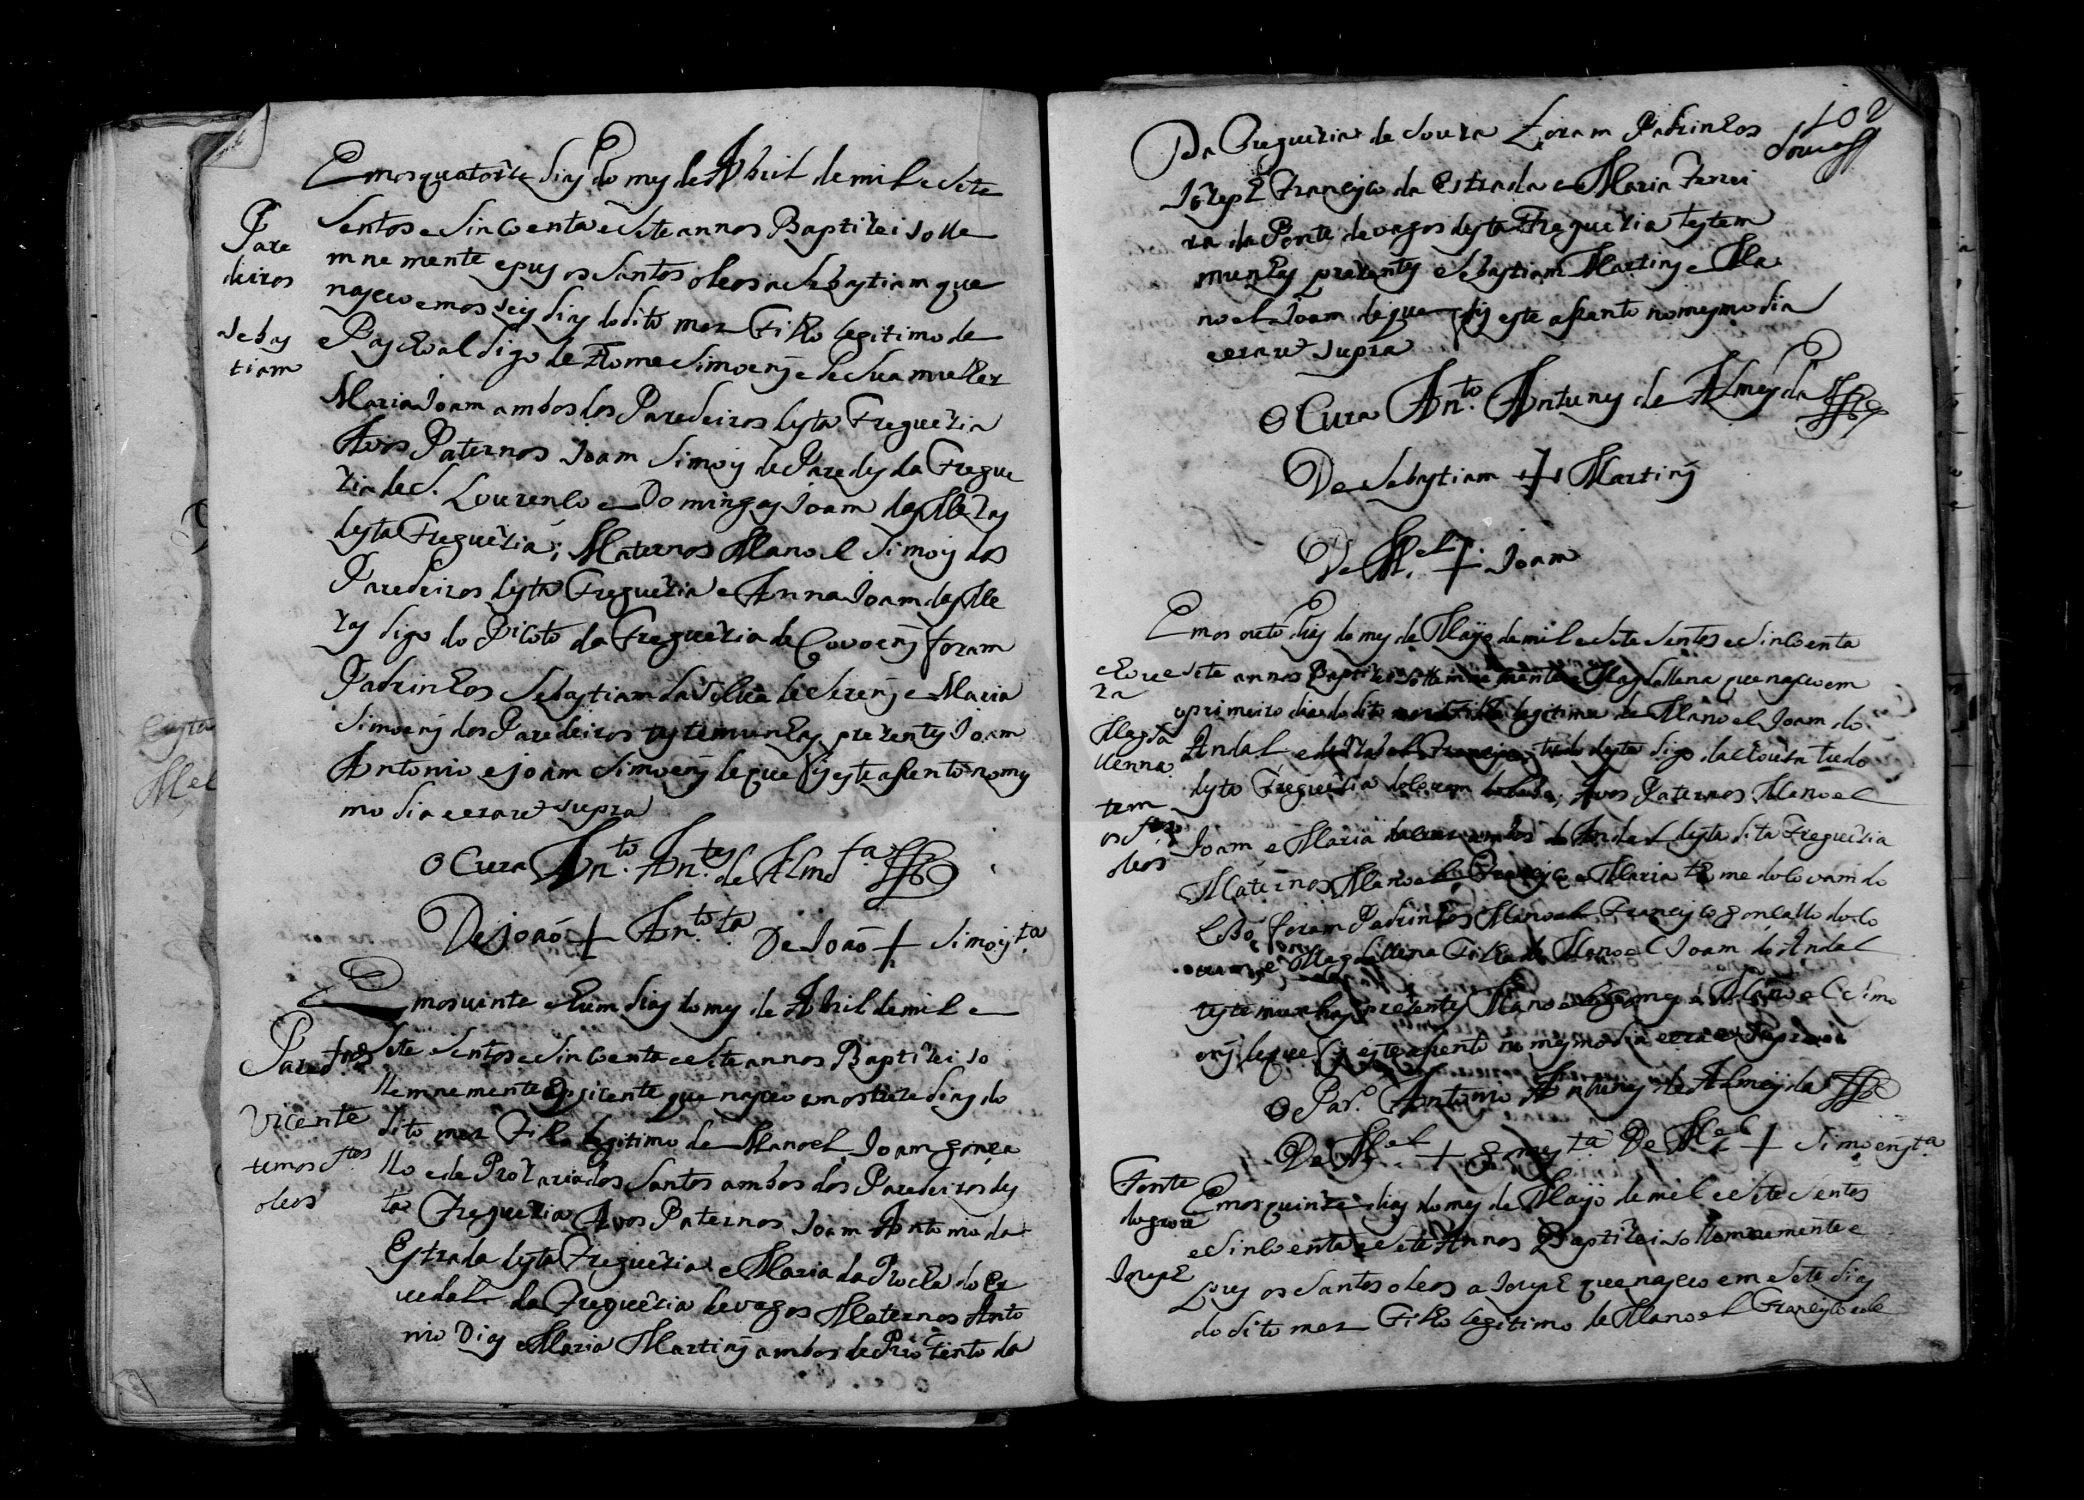 Pare
deiros
Sebas
tiam
Emos quatorze dias do mes de Abril de mil e Sete
Sentos e Sincoenta e Sete annos Baptizei solle
mnemente e pus os Santos oleos a Sebastiam que
nasceo emos seis dias do dito mes Filho legitimo de
Pascoal digo de Thome Simoens e de Sua mulher
Maria Joam ambos dos Paredeiros desta Freguezia
Avos Paternos Joam Simois de Paredes da Fregue
zia de S. Lourenco e Domingas Joam das Mezas
desta Freguezia; Maternos Manoel Simois dos
Paredeiros desta Freguezia e Anna Joam das Me
zas digo do Picoto da Freguezia de Covoens foram
Padrinhos Sebastiam da Silva de e Maria
Simoens dos Paredeiros testemunhas prezentes Joam
Antonio e Joam Simoens de que fis este asento no mes
mo dia e era ut supra
O Cura Anto. Antes. de Almda
De Joaõ + Anto. ta De Joaõ + Simois ta.
Pared.ros
Vicente
temos stos
oleos
Emos vinte e hum dias do mes de Abril de mil e
Sete Sentos e Sincoenta e Sete annos Baptizei so
llemnemente a Vicente que nasceo emos treze dias do
dito mes Filho legitimo de Manoel Joam gonca
llo e de Roza ria dos Santos ambos dos Paredeiros des
ta Freguezia Avos Paternos Joam Antonio da
Estrada desta Freguezia e Maria da Rocha do
da Freguezia de vagos Maternos Anto
nio Dias e Maria Martins ambos de Rio tinto da
102
Da Freguezia de Souza Foram Padrinhos
Jozeph Francisco da Estrada e Maria Ferrei
ra da Ponte de vagos desta Freguezia testem
munhas prezentes Sebastiam Martins e Ma
noel Joam de que fis este asento no mesmo dia
e era ut supra
O Cura Anto. Antunes de Almeyda
De Sebastiam + Martins
De Mel. + Joam
Magda
llenna
tem
os stos
oleos
Emos outo dias do mes de Mayo de mil e Sete Sentos e Sincoenta
e Sete annos Baptizei sollemnemente a Magdallena que nasceo em
o primeiro dia do dito mes Filha legitima de Manoel Joam do
Andal e de Izabel Francisca tudo desta digo da tudo
desta Freguezia Avos Paternos Manoel
Joam e Maria ambos do Andal desta dita Freguezia
Maternos Manoel Francisco e Maria Thome do
foram Padrinhos Manoel Francisco goncallo do
e Magdallena Filha de Manoel Joam do Andal
testemunhas prezentes Manoel gomes e Manoel Simo
ens de que fis este asento no mesmo dia e era ut supra
O Par.o Antonio Antunes de Almeyda
De Mel + gomes ta. De Mel + Simoens ta.
Fonte
Jozeph
Emos quinze dias do mes de Mayo de mil e Sete Sentos
e Sincoenta e Sete Annos Baptizei sollemnemente e
pus os Santos oleos a Jozeph que nasceo em Sete dias
do dito mes Filho legitimo de Manoel Francisco e de